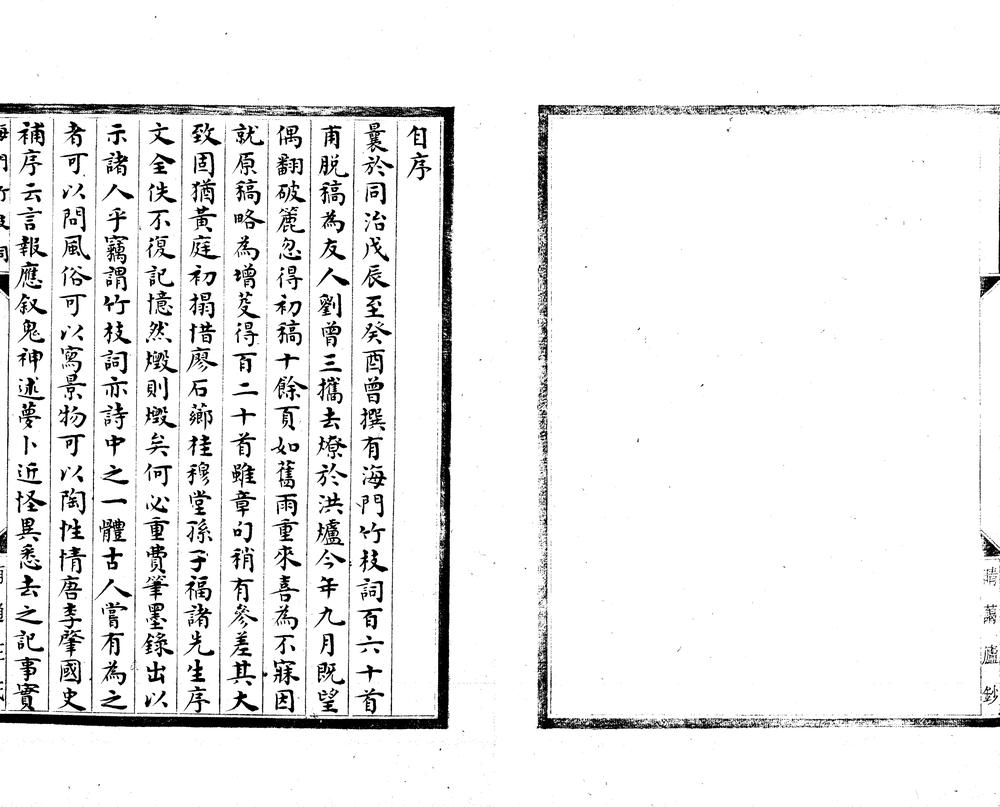 自序
曩於同治戊辰至癸酉曾撰有海門竹枝詞百六十首
甫脱稿為友人劉曾三攜去燎於洪爐今年九月既望
偶翻破簏忽得初稿十餘頁如舊雨重來喜為不寐因
就原稿略為增芟得百二十首雖章句稍有參差其大
致固猶黃庭初搨惜廖石薌桂穆堂孫子福諸先生序
文全佚不復記憶然燬則燬矣何必重費筆墨錄出以
示諸人乎竊謂竹枝詞亦詩中之一體古人嘗有為之
者可以問風俗可以寫景物可以陶性情唐李肇國史
補序云言報應叙鬼神述夢卜近怪異悉去之記事實
海門竹枝詞